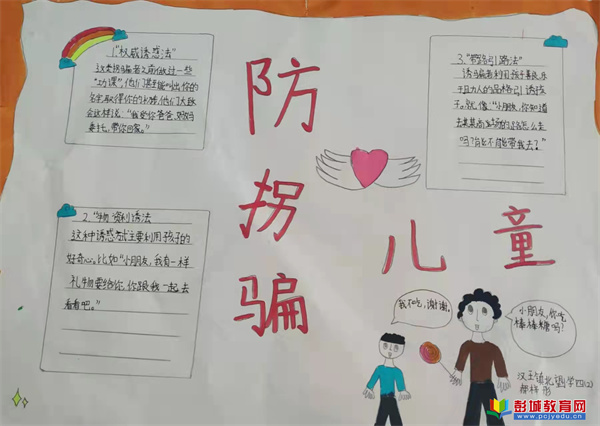 防
拐
骗
儿童
1."权威诱惑法"
这类拐骗者之前做过一些
"功课",他们甚至能叫出你的
名字取得你的
会这样说:"我受你爸爸、妈妈
委托,带你回家。"
2."物资利诱法
这种诱惑方式主要利用孩子的
好奇心。比如"小朋友,我有一样
礼物要给你,你跟我一起去
看看吧。"
3."带路引路法"
诱骗者利用孩子善良、乐
于助人的品格引诱孩
子。就像:"小朋友,你知道
去某某商场的路怎么走
吗?能不能带我去?"
我不吃,谢谢。
小朋友,你吃
棒棒糖吗?
汉王镇北望小学四(2)
彭城教育网
www.pcjyedu.cn